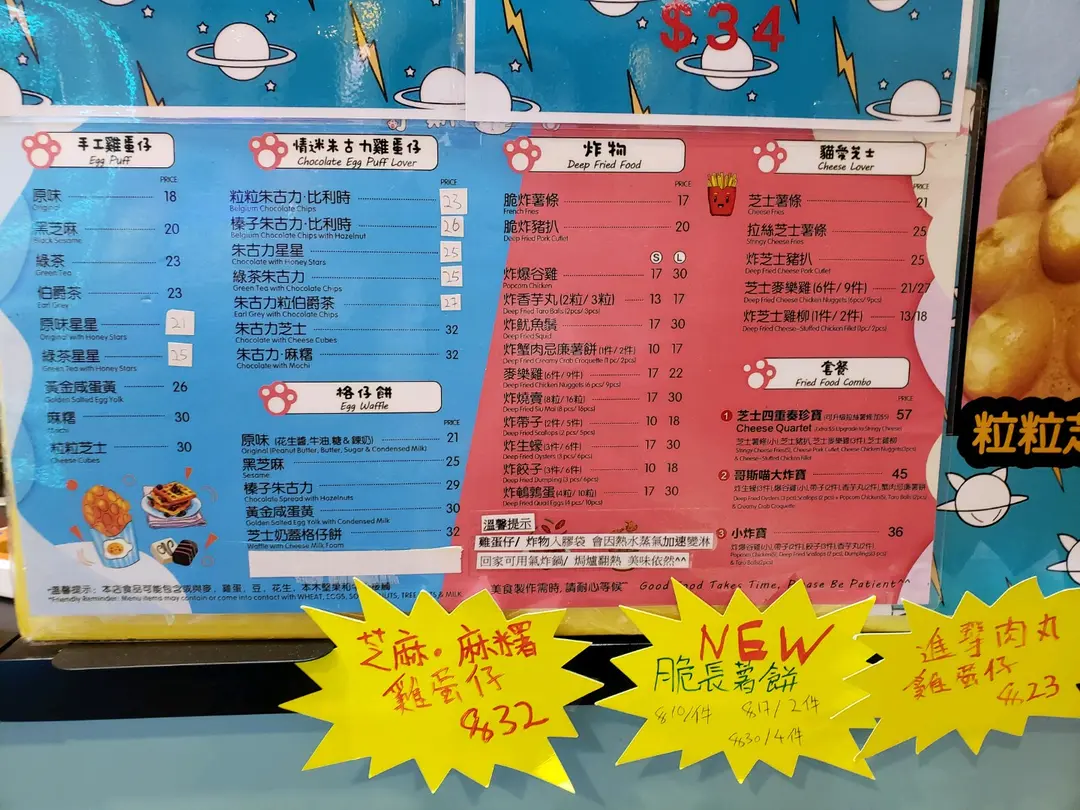 $34
手工雞蛋仔
Egg Puff
PRICE
原味 18
Original
黑芝麻 20
Black Sesame
綠茶 23
Green Tea
伯爵茶 23
Earl Grey
原味星星 21
Original with Honey Stars
綠茶星星 25
Green Tea with Honey Stars
黃金咸蛋黃 26
Golden Salted Egg Yolk
麻糬 30
Mochi
粒粒芝士 30
Cheese Cubes
情迷朱古力雞蛋仔
Chocolate Egg Puff Lover
PRICE
粒粒朱古力·比利時 23
Belgium Chocolate Chips
榛子朱古力·比利時 26
Belgium Chocolate Chips with Hazelnut
朱古力星星 25
Chocolate with Honey Stars
綠茶朱古力 25
Green Tea with Chocolate Chips
朱古力粒伯爵茶 27
Earl Grey with Chocolate Chips
朱古力芝士 32
Chocolate with Cheese Cubes
朱古力·麻糬 32
Chocolate with Mochi
格仔餅
Egg Waffle
PRICE
原味 (花生醬,牛油,糖&鍊奶) 21
Original (Peanut Butter, Butter, Sugar & Condensed Milk)
黑芝麻 25
Sesame
榛子朱古力 29
Chocolate Spread with Hazelnuts
黃金咸蛋黃 30
Golden Salted Egg Yolk with Condensed Milk
芝士奶蓋格仔餅 32
Waffle with Cheese Milk Foam
炸物
Deep Fried Food
PRICE
脆炸薯條 17
French Fries
脆炸豬扒 20
Deep Fried Pork Cutlet
S L
炸爆谷雞 17 30
Popcorn Chicken
炸香芋丸(2粒/3粒) 13 17
Deep Fried Taro Balls (2pcs/3pcs)
炸魷魚鬚 17 30
Deep Fried Squid
炸蟹肉忌廉薯餅(1件/2件) 10 17
Deep Fried Creamy Crab Croquette (1 pc/2 pcs)
麥樂雞(6件/9件) 17 22
Deep Fried Chicken Nuggets (6 pcs/9 pcs)
炸燒賣(8粒/16粒) 17 30
Deep Fried Siu Mai (8 pcs/16pcs)
炸帶子(2件/5件) 10 18
Deep Fried Scallops (2 pcs/5 pcs)
炸生蠔(3件/6件) 17 30
Deep Fried Oysters (3 pcs/6 pcs)
炸餃子(3件/6件) 10 18
Deep Fried Dumpling (3 pcs/6 pcs)
炸鵪鶉蛋(4粒/10粒) 17 30
Deep Fried Quail Eggs (4 pcs/10pcs)
貓愛芝士
Cheese Lover
PRICE
芝士薯條 21
Cheese Fries
拉絲芝士薯條 25
Stringy Cheese Fries
炸芝士豬扒 25
Deep Fried Cheese Pork Cutlet
芝士麥樂雞(6件/9件) 21/27
Deep Fried Cheese Chicken Nuggets (6pcs/9pcs)
炸芝士雞柳(1件/2件) 13/18
Deep Fried Cheese-Stuffed Chicken Fillet (1pc/2pcs)
套餐
Fried Food Combo
PRICE
1 芝士四重奏珍寶 (可升級拉絲薯條加$5) 57
Cheese Quartet (Extra $5 Upgrade to Stringy Cheese)
芝士薯條(小),芝士豬扒,芝士麥樂雞(3件),芝士雞柳
2 哥斯喵大炸寶 45
炸生蠔(3件),爆谷雞(小),帶子(2件),香芋丸(2件),蟹肉忌廉薯餅
& Creamy Crab Croquette
3 小炸寶 36
炸爆谷雞(小),帶子(2件),餃子(3件),香芋丸(2件)
& Taro Balls(2pcs)
溫馨提示
雞蛋仔/ 炸物入膠袋 會因熱水蒸氣加速變淋
回家可用氣炸鍋/ 焗爐翻熱 美味依然^^
美食製作需時, 請耐心等候~ Good Food Takes Time, Please Be Patient^^
*溫馨提示:本店食品可能包含或與麥,雞蛋,豆,花生,本木堅果和牛奶接觸
*Friendly Reminder: Menu items may contain or come into contact with WHEAT, EGGS, SOY, NUTS, TREE NUTS & MILK
粒粒芝
芝麻·麻糬
雞蛋仔
$32
NEW
脆長薯餅
$10/件 $17/2件
$30/4件
進擊肉丸
雞蛋仔
$23